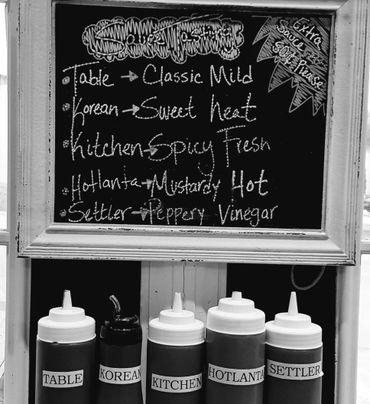 Table → Classic Mild
Korean → Sweet heat
Kitchen → Spicy Fresh
Hotlanta → Mustardy Hot
Settler → Peppery Vinegar
Extra
Sauce
50¢ Please
TABLE
KOREAN
KITCHEN
HOTLANTA
SETTLER